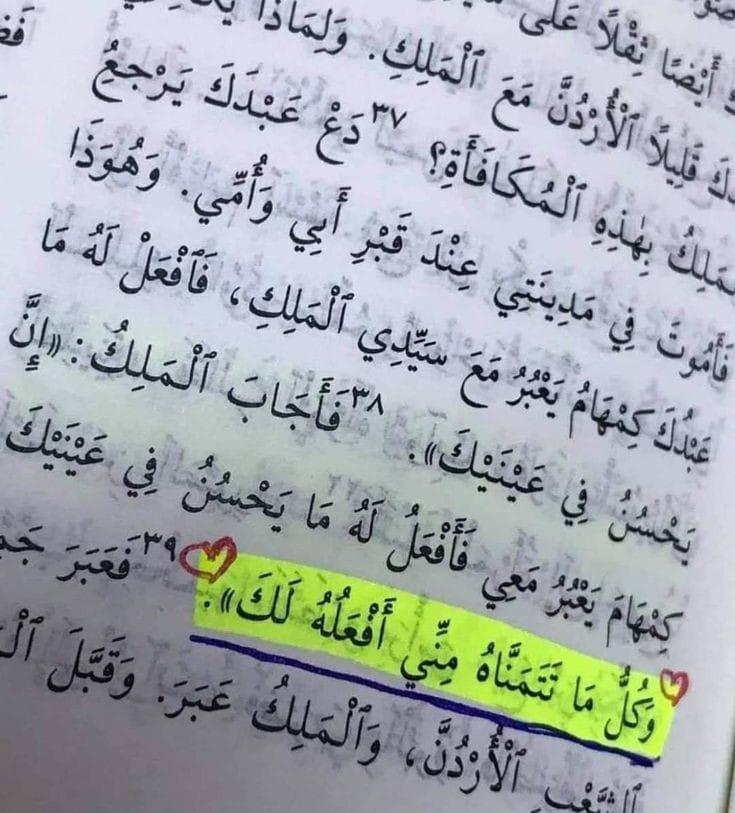 أَيْضًا ثِقْلًا عَلَى
قَلِيلًا ٱلْأُرْدُنَّ مَعَ ٱلْمَلِكِ. وَلِمَاذَا
بِهٰذِهِ ٱلْمُكَافَأَةِ؟ ٣٧ دَعْ عَبْدَكَ يَرْجِعُ
فَأَمُوتَ فِي مَدِينَتِي عِنْدَ قَبْرِ أَبِي وَأُمِّي. وَهُوَذَا
عَبْدُكَ كِمْهَامُ يَعْبُرُ مَعَ سَيِّدِي ٱلْمَلِكِ، فَٱفْعَلْ لَهُ مَا
يَحْسُنُ فِي عَيْنَيْكَ». ٣٨ فَأَجَابَ ٱلْمَلِكُ: «إِنَّ
كِمْهَامَ يَعْبُرُ مَعِي فَأَفْعَلُ لَهُ مَا يَحْسُنُ فِي عَيْنَيْكَ
وَكُلُّ مَا تَتَمَنَّاهُ مِنِّي أَفْعَلُهُ لَكَ». ٣٩ فَعَبَرَ
ٱلشَّعْبِ ٱلْأُرْدُنَّ، وَٱلْمَلِكُ عَبَرَ. وَقَبَّلَ